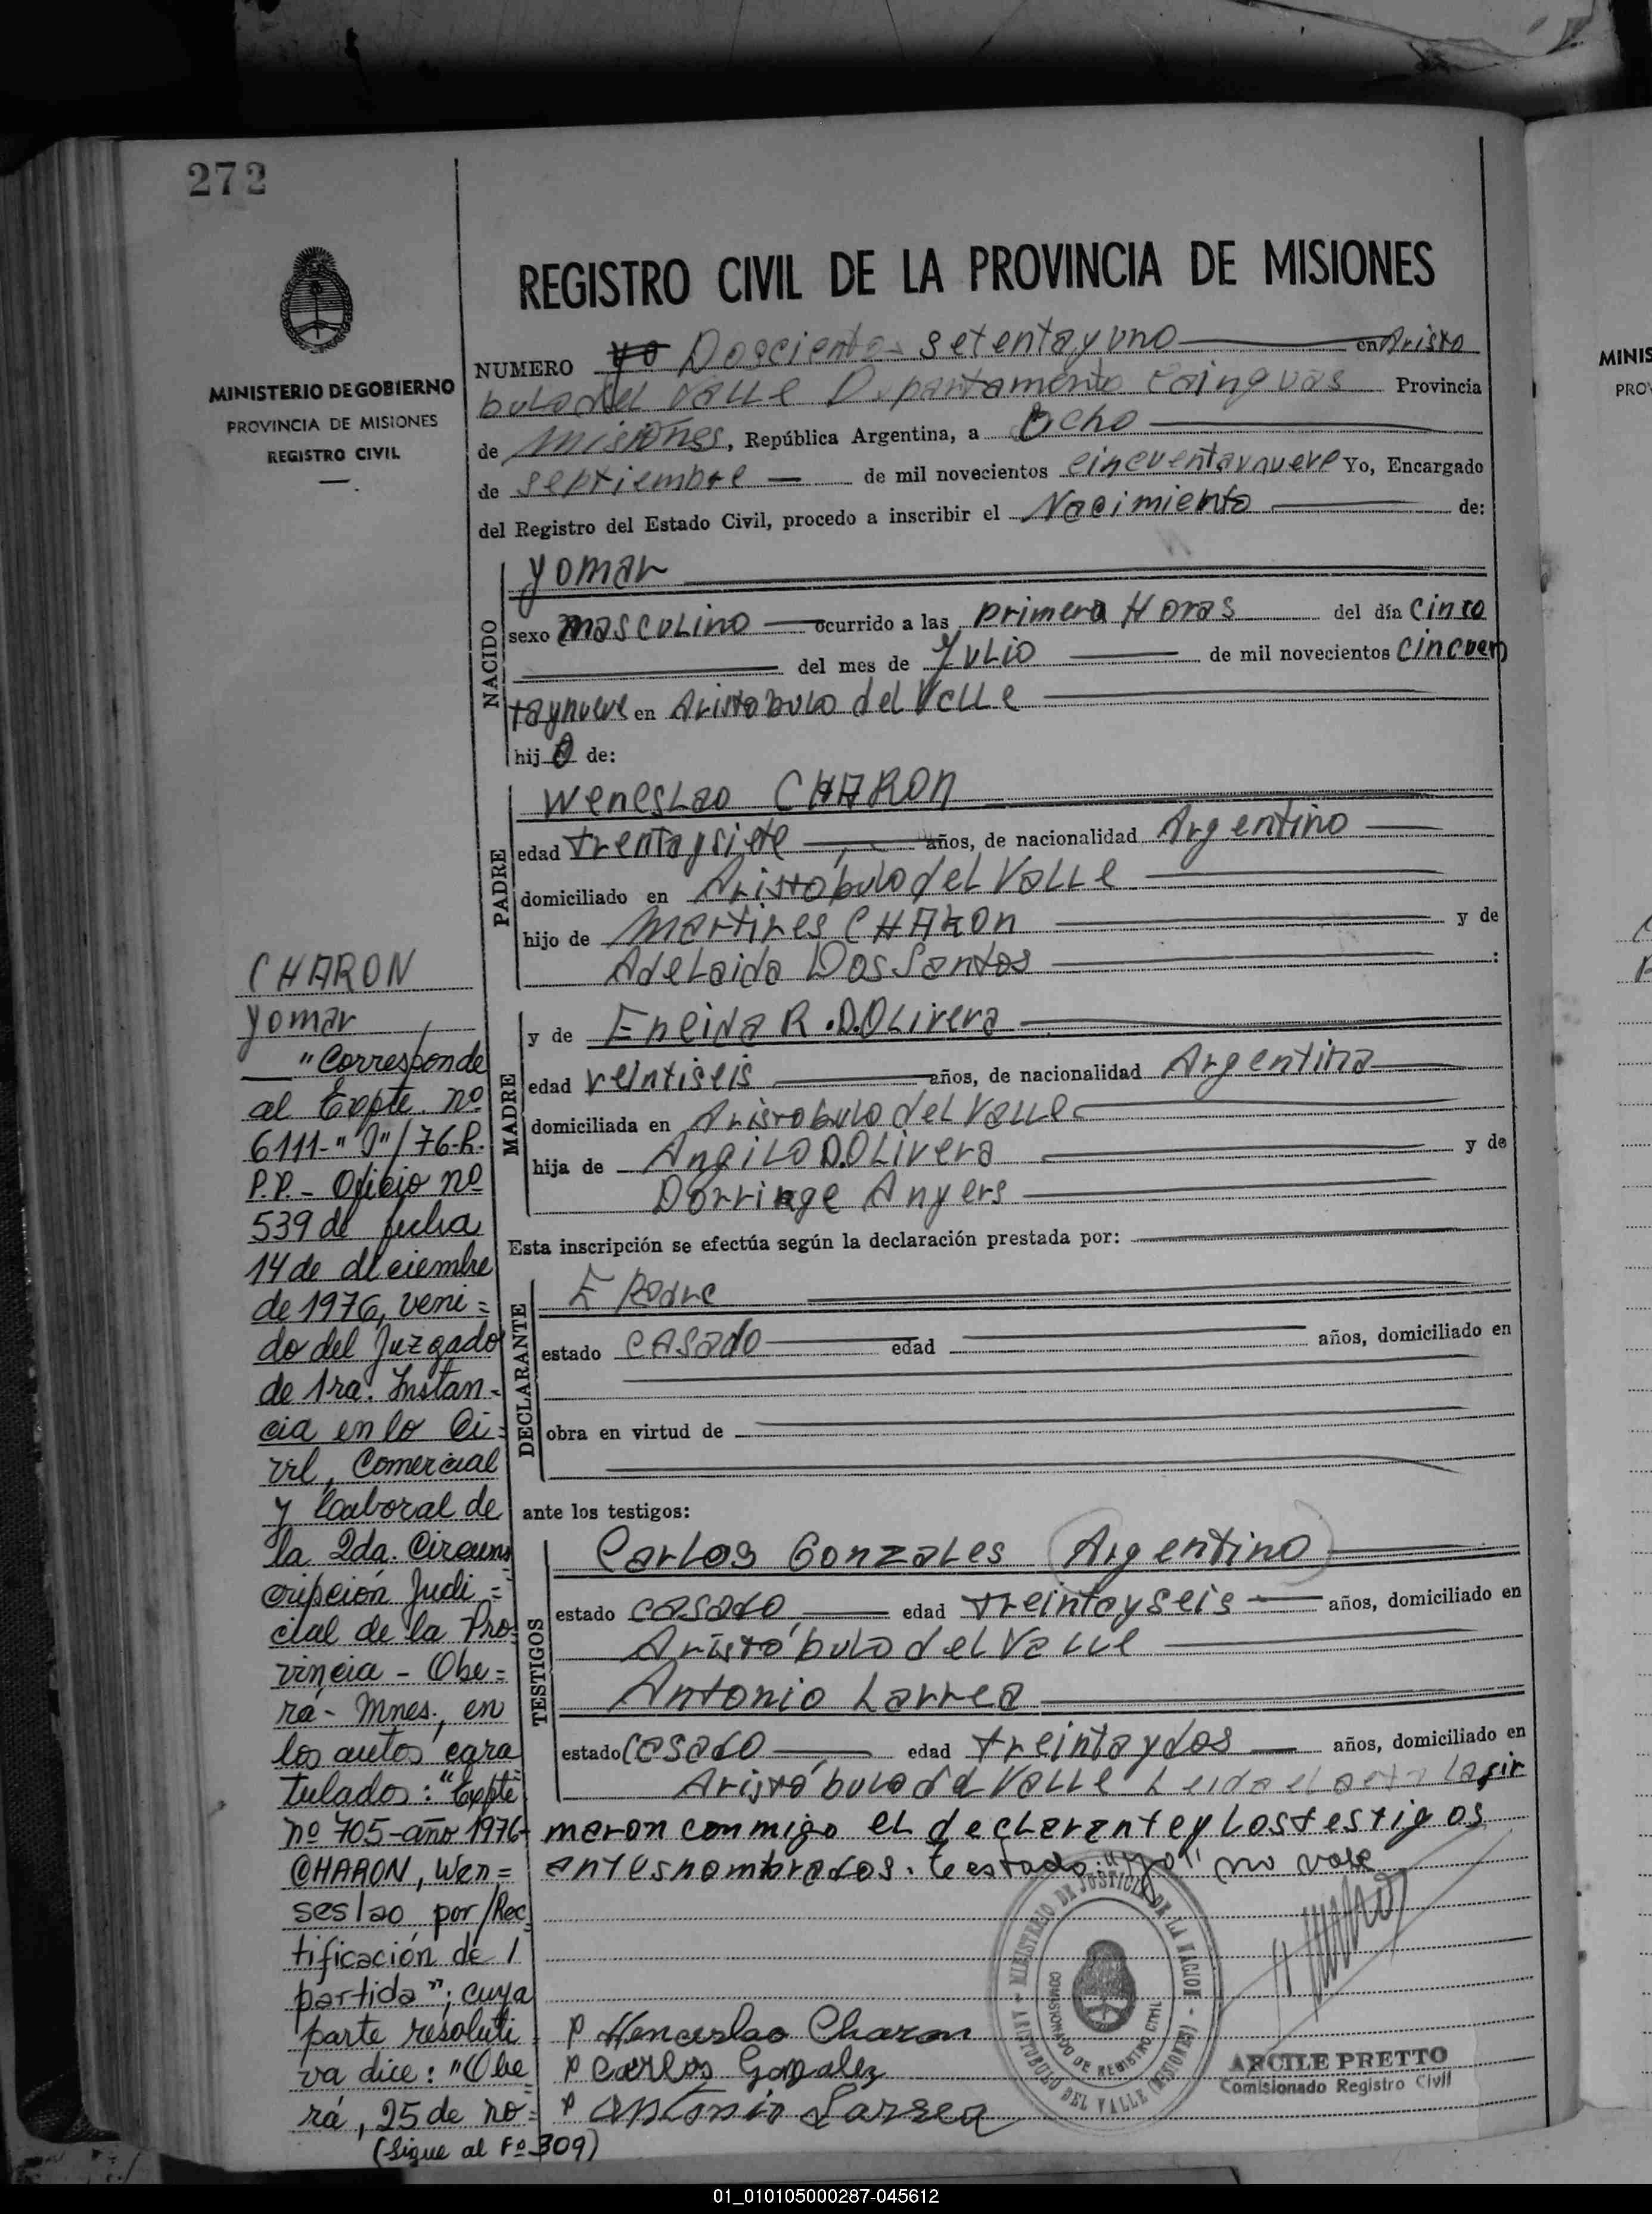 272
MINISTERIO DE GOBIERNO
PROVINCIA DE MISIONES
REGISTRO CIVIL
REGISTRO CIVIL DE LA PROVINCIA DE MISIONES
NUMERO yo Doscientos setentayuno en Aristo
bulo del Valle Departamento Cainguas Provincia
de Misiones, República Argentina, a Ocho
de septiembre de mil novecientos cincuentaynueve Yo, Encargado
del Registro del Estado Civil, procedo a inscribir el Nacimiento de:
NACIDO
Yomar
sexo masculino ocurrido a las primera Horas del día cinco
del mes de Julio de mil novecientos cincuen
taynueve en Aristobulo del Valle
hijo de:
PADRE
Weneslao CHARON
edad trentaysiete años, de nacionalidad Argentino
domiciliado en Aristóbulo del Valle
hijo de Martires CHARON y de
Adelaida Dos Santos :
MADRE
y de Eneida R. D.Olivera
edad veintiseis años, de nacionalidad Argentina
domiciliada en Aristobulo del Valle
hija de Angilo D.Olivera y de
Dorringe Anyers
Esta inscripción se efectúa según la declaración prestada por:
DECLARANTE
estado casado edad años, domiciliado en
obra en virtud de
ante los testigos:
TESTIGOS
Carlos Gonzales (Argentino)
estado casado edad treintayseis años, domiciliado en
Aristóbulo del Valle
Antonio Larrea
estado casado edad treintaydos años, domiciliado en
Aristóbulo del Valle Leida el acta la fir
maron conmigo el declarante y los testigos
antesnombrados. Testado: "yo" no vale
p Wenceslao Charon
p Carlos Gonzalez
p Antonio Larrea
MINISTERIO DE JUSTICIA DE LA NACION - ARISTOBULO DEL VALLE (MISIONES)
COMISIONADO DE REGISTRO CIVIL
ARCILE PRETTO
Comisionado Registro Civil
CHARON
Yomar
"Corresponde
al Expte. nº
6111-"J"/76-R.
P.P. - Oficio nº
539 de fecha
14 de diciembre
de 1976, veni=
do del Juzgado
de 1ra. Instan=
cia en lo Ci=
vil, Comercial
y Laboral de
la 2da. Circuns
cripción Judi=
cial de la Pro
vincia - Obe=
rá - Mnes., en
los autos cara
tulados: "Expte
nº 705-año 1976-
CHARON, Wen=
seslao por/Rec
tificación de /
partida"; cuya
parte resoluti=
va dice: "Obe
rá, 25 de no=
(Sigue al Fº 309)
MINIS
PRO
01_010105000287-045612